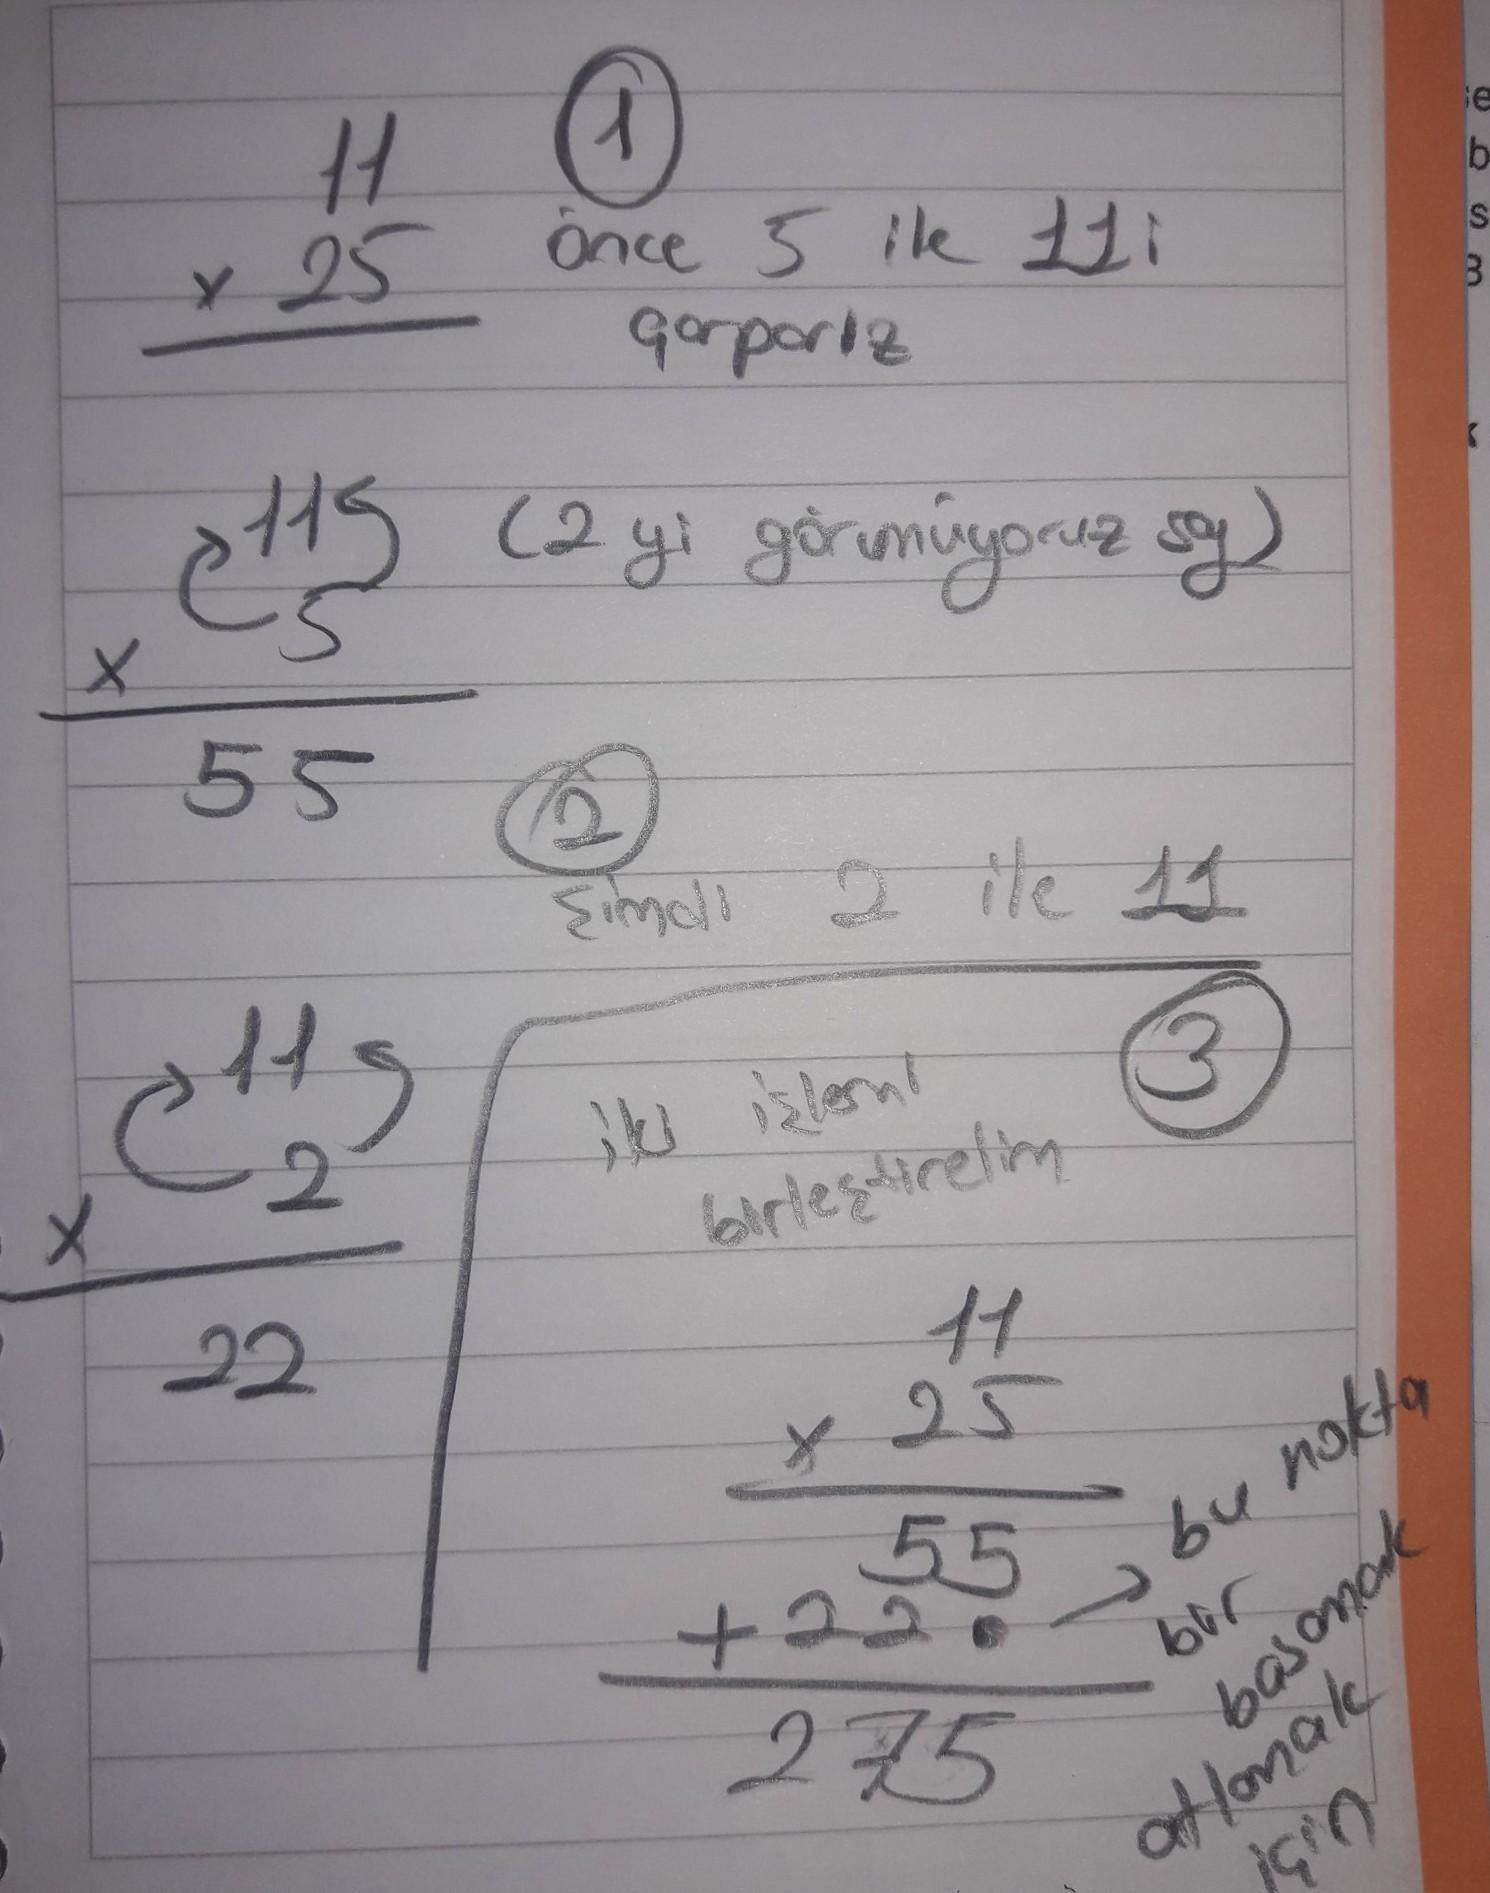 11
x 25
①
önce 5 ile 11i
çarparız
11
x 5
55
(2 yi görmüyoruz say)
②
şimdi 2 ile 11
11
x 2
22
③
iki işlemi
birleştirelim
11
x 25
55
+ 22•
275
bu nokta
bir
basamak
atlamak
için